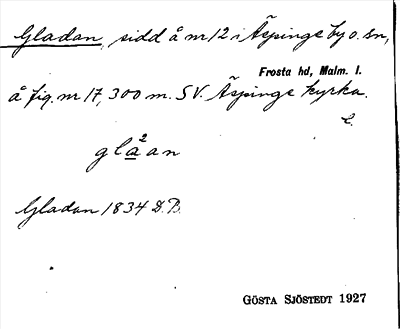 Gladan, sidd å nr 12 i Äspinge by o. sn,
Frosta hd, Malm. l.
å fig. nr 17, 300 m. SV. Äspinge kyrka.
gla²an
Gladan 1834 D.B.
GÖSTA SJÖSTEDT 1927